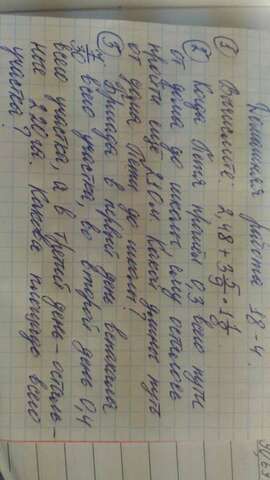 Домашняя работа 18-4.
① Вычислите: 2,48 + 3 5/7 · 1
② Когда Петя прошёл 0,3 всего пути
от дома до школы, ему осталось
пройти ещё 210м. Какой длины путь
от дома Пети до школы?
③ Бригада в первый день вспахала
7/30 всего участка, во второй день 0,4
всего участка, а в третий день – осталь-
ные 220 га. Какова площадь всего
участка?